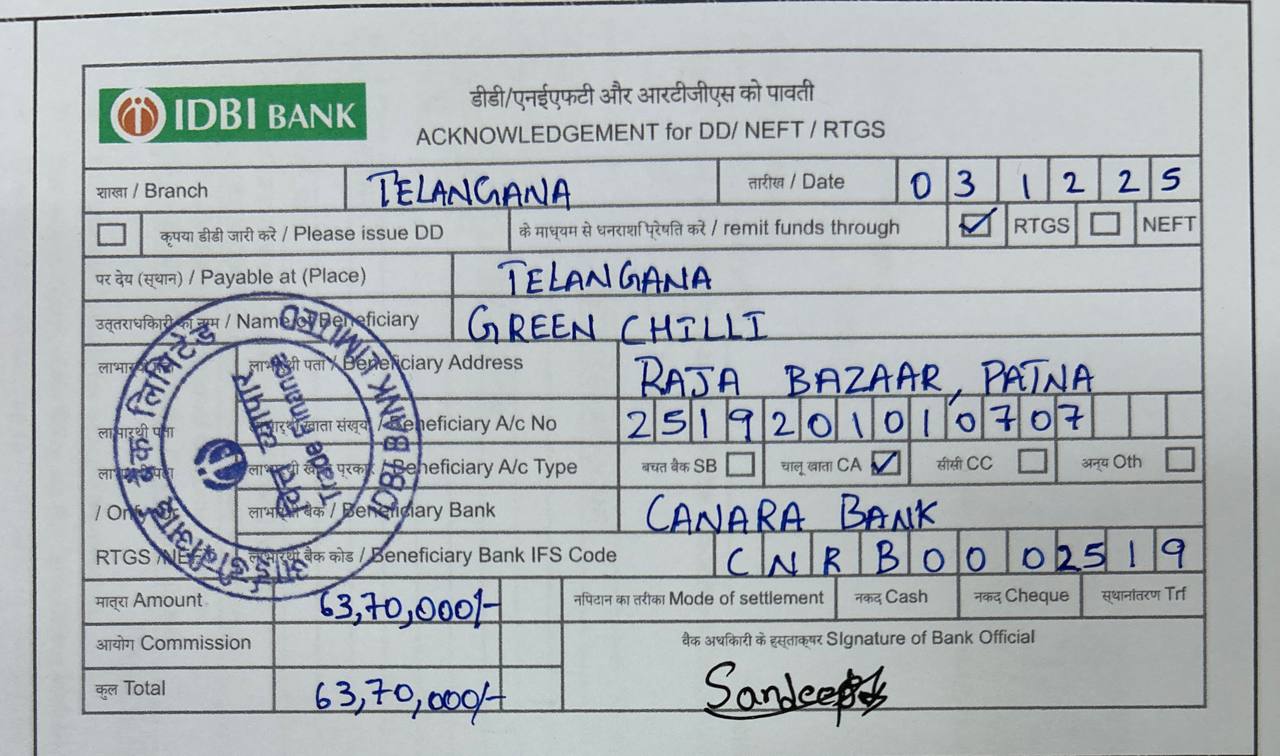 IDBI BANK
डीडी/एनईएफटी और आरटीजीएस को पावती
ACKNOWLEDGEMENT for DD/ NEFT / RTGS
शाखा / Branch TELANGANA तारीख / Date 0 3 1 2 2 5
कृपया डीडी जारी करे / Please issue DD के माध्यम से धनराशि प्रेषति करे / remit funds through RTGS NEFT
पर देय (स्थान) / Payable at (Place) TELANGANA
उत्तराधकिारी का नाम / Name of Beneficiary GREEN CHILLI
लाभार्थी पता / Beneficiary Address RAJA BAZAAR, PATNA
लाभार्थी पता लाभार्थी खाता संख्या / Beneficiary A/c No 2519201010707
लाभार्थी खाता प्रकार / Beneficiary A/c Type बचत बैक SB चालू खाता CA सीसी CC अन्य Oth
लाभार्थी बैक / Beneficiary Bank CANARA BANK
RTGS /NEFT लाभार्थी बैक कोड / Beneficiary Bank IFS Code CNRB0002519
मात्रा Amount 63,70,000/- नपिटान का तरीका Mode of settlement नकद Cash नकद Cheque स्थानांतरण Trf
आयोग Commission बैक अधकिारी के हस्ताक्षर SIgnature of Bank Official
कुल Total 63,70,000/- Sandeep
आईडीबीआई बैंक लिमिटेड
IDBI BANK LIMITED
व्यापार वित्त
Trade Finance